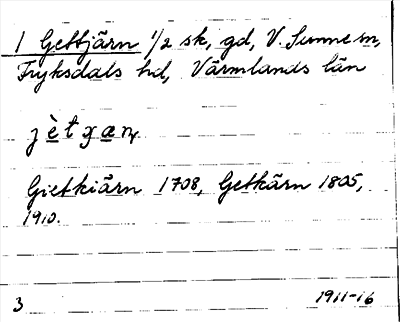 1 Getbjärn 1/2 sk, gd, V. Sunne sn,
Fryksdals hd, Värmlands län
jètxan
Gietkiärn 1708, Getkärn 1805,
1910.
3 1911-16